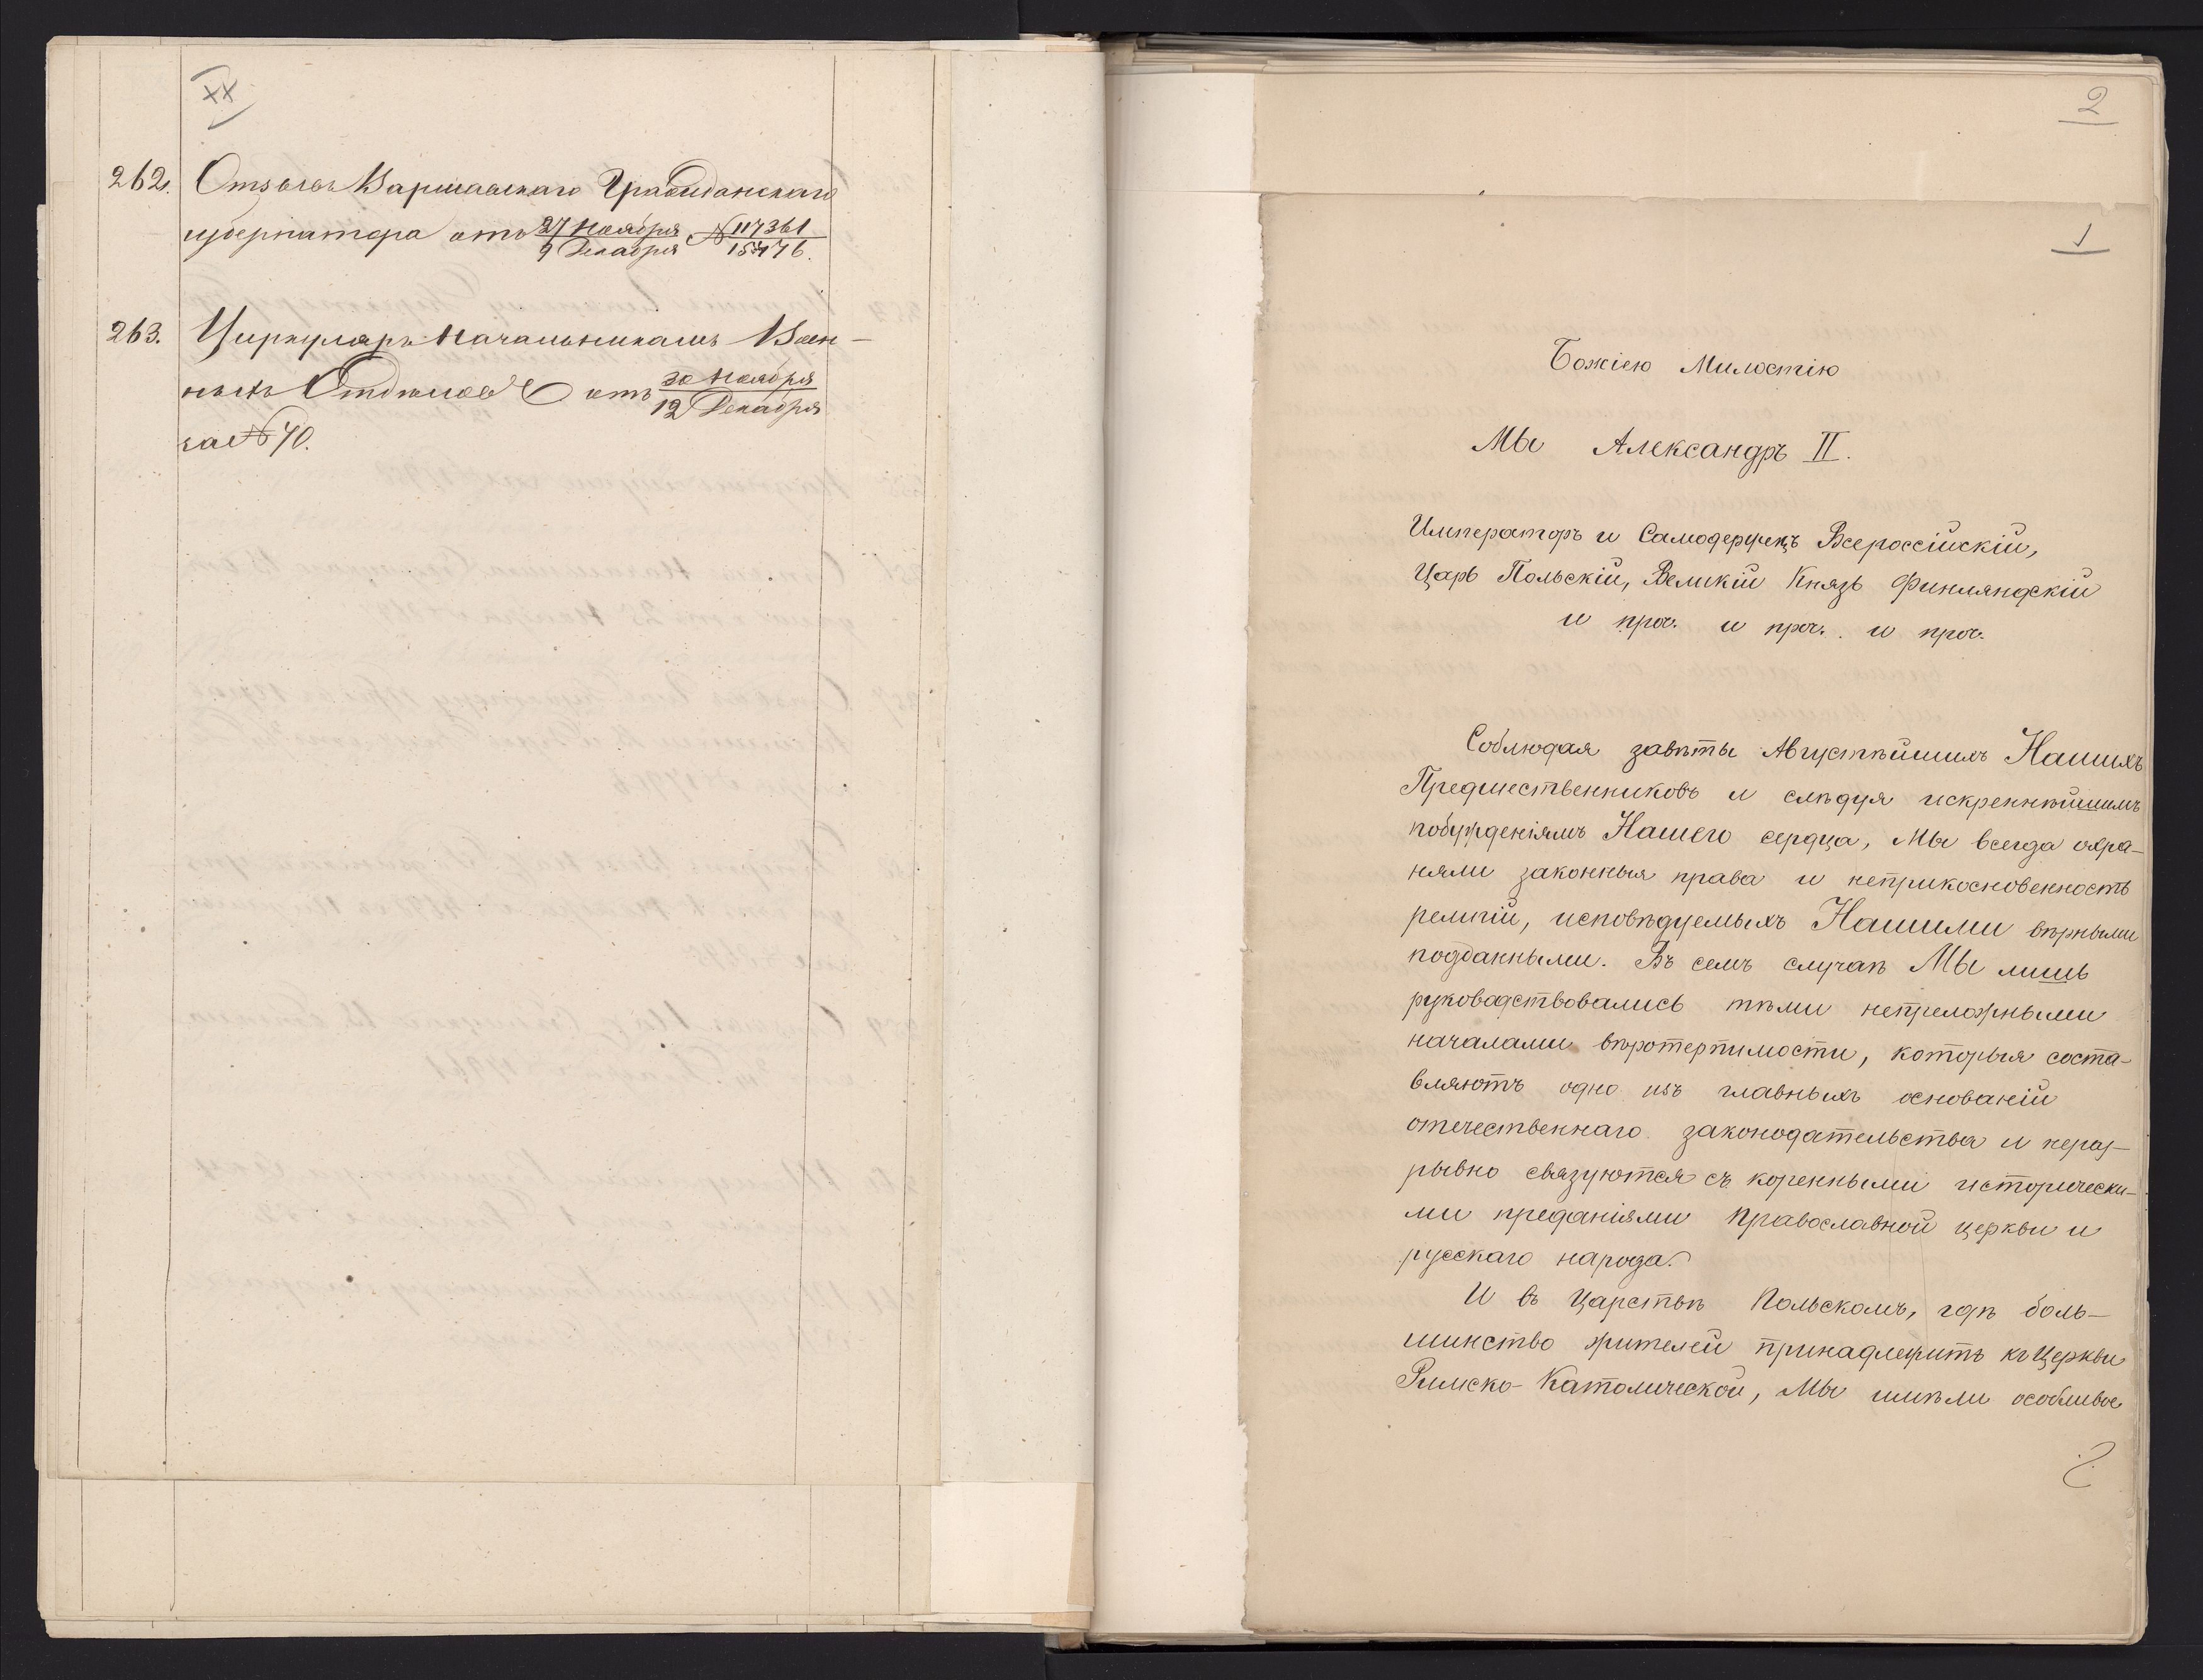 XX
262. Отзывъ Варшавскаго Гражданскаго
губернатора отъ 27 Ноября / 9 Декабря № 117361 / 15776.
263. Циркуляръ Начальникамъ Воен-
ныхъ Отдѣловъ отъ 30 Ноября / 12 Декабря
за № 70.
2
1
Божіею Милостію
Мы Александръ II.
Императоръ и Самодержецъ Всероссійскій,
Царь Польскій, Великій Князь Финляндскій
и проч. и проч. и проч.
Соблюдая завѣты Августѣйшихъ Нашихъ
Предшественниковъ и слѣдуя искреннѣйшимъ
побужденіямъ Нашего сердца, Мы всегда охра-
няли законныя права и неприкосновенность
религій, исповѣдуемыхъ Нашими вѣрными
подданными. Въ семъ случаѣ Мы лишь
руководствовались тѣми непреложными
началами вѣротерпимости, которыя соста-
вляютъ одно изъ главныхъ основаній
отечественнаго законодательства и нераз-
рывно связуются съ коренными исторически-
ми преданіями Православной церкви и
русскаго народа.
И въ Царствѣ Польскомъ, гдѣ боль-
шинство жителей принадлежитъ къ Церкви
Римско-Католической, Мы имѣли особливое